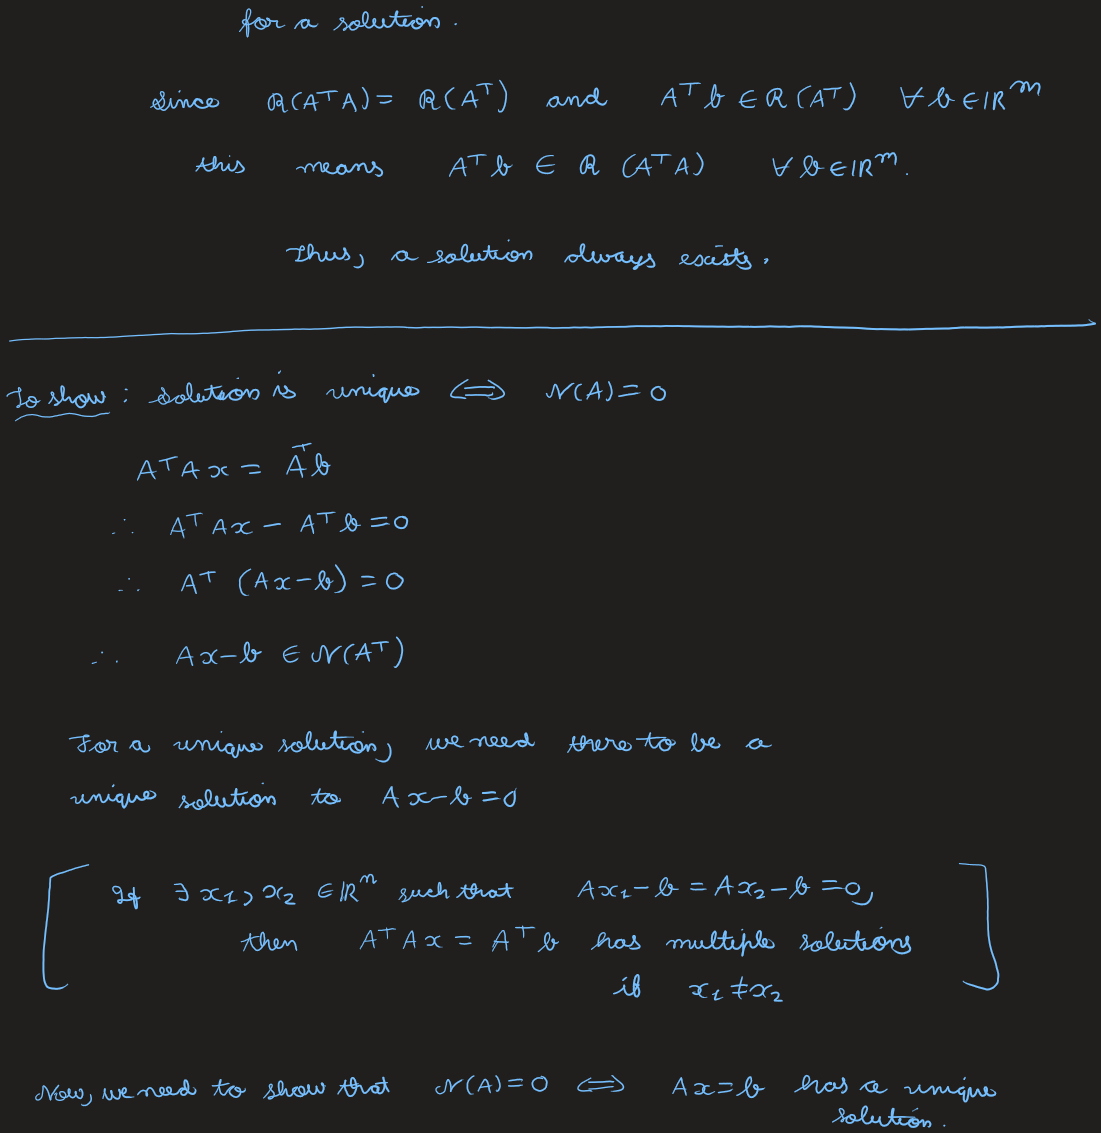 for a solution.
Since R(AᵀA) = R(Aᵀ) and Aᵀb ∈ R(Aᵀ) ∀ b ∈ ℝᵐ
this means Aᵀb ∈ R(AᵀA) ∀ b ∈ ℝᵐ.
Thus, a solution always exists.
To show: solution is unique ⟺ N(A) = 0
AᵀAx = Aᵀb
∴ AᵀAx − Aᵀb = 0
∴ Aᵀ (Ax−b) = 0
∴ Ax−b ∈ N(Aᵀ)
For a unique solution, we need there to be a
unique solution to Ax−b = 0
If ∃ x₁, x₂ ∈ ℝⁿ such that Ax₁−b = Ax₂−b = 0,
then AᵀAx = Aᵀb has multiple solutions
if x₁ ≠ x₂
Now, we need to show that N(A) = 0 ⟺ Ax = b has a unique
solution.